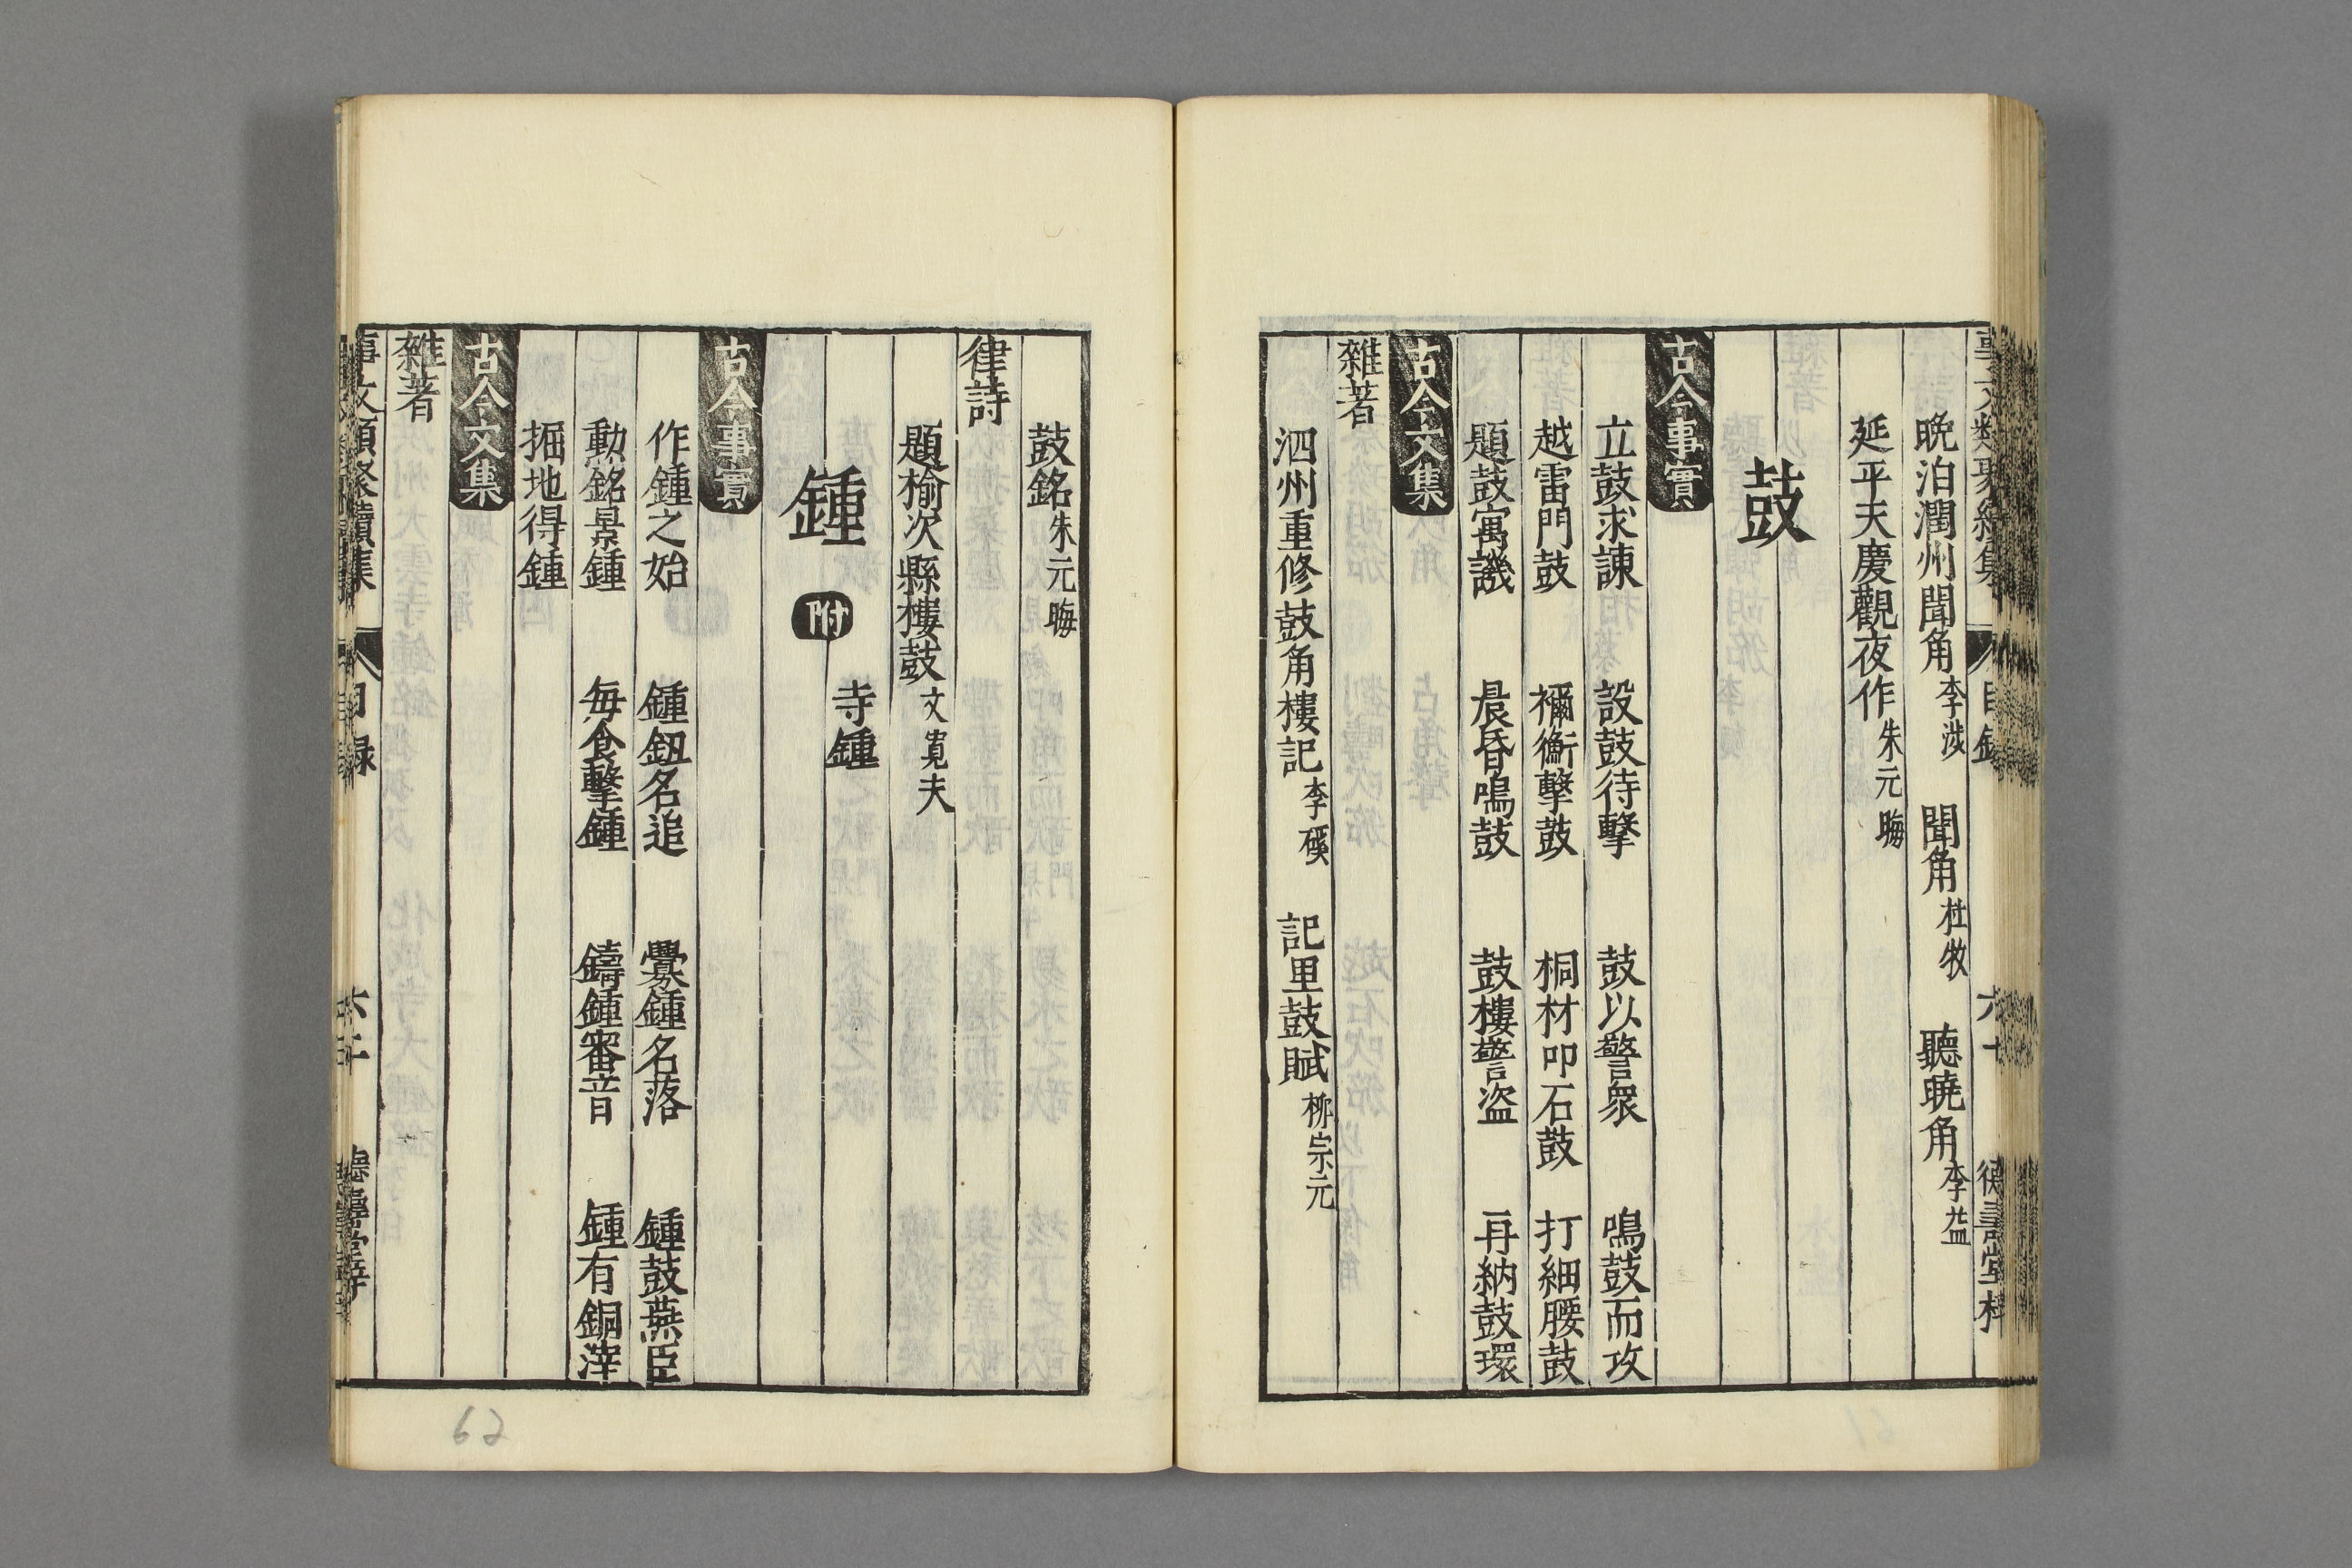 晩泊潤州聞角李涉　聞角杜牧　聽曉角李益
延平天慶觀夜作朱元晦
鼓
古今事實
立鼓求諫　設鼓待擊　鼓以警衆　鳴鼓而攻
越雷門鼓　禰衡擊鼓　桐材叩石鼓　打細腰鼓
題鼓寓譏　晨昏鳴鼓　鼓樓警盗　再納鼓環
古今文集
雜著
泗州重修鼓角樓記李磎　記里鼓賦柳宗元
鼓銘朱元晦
律詩
題榆次縣樓鼓文寛夫
寺鍾
鍾　附
古今事實
作鍾之始　鍾鈕名追　釁鍾名落　鍾鼓燕臣
勳銘景鍾　毎食擊鍾　鑄鍾審音　鍾有銅滓
掘地得鍾
古今文集
雜著
事文類聚續集　目録　六十二　德壽堂梓
62